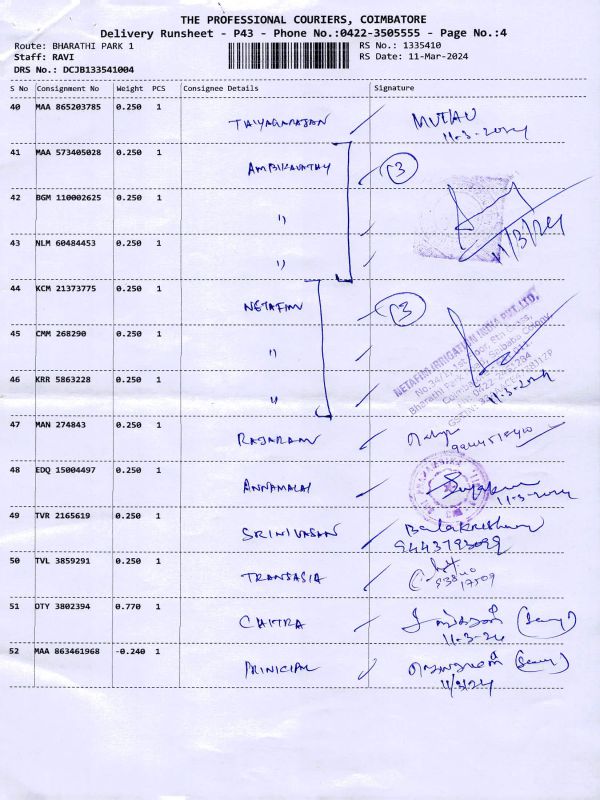 THE PROFESSIONAL COURIERS, COIMBATORE
Delivery Runsheet - P43 - Phone No.:0422-3505555 - Page No.:4
Route: BHARATHI PARK 1 RS No.: 1335410
Staff: RAVI RS Date: 11-Mar-2024
DRS No.: DCJB133541004
S No Consignment No Weight PCS Consignee Details Signature
40 MAA 865203785 0.250 1 THIYAGARAJAN
11-3-2024
41 MAA 573405028 0.250 1 AMBIKAVATHY 3
42 BGM 110002625 0.250 1 11
11/3/24
43 NLM 60484453 0.250 1 11
44 KCM 21373775 0.250 1 NETAFIM 3
NETAFIM IRRIGATION INDIA PVT. LTD.
45 CMM 268290 0.250 1 11
46 KRR 5863228 0.250 1 11
11-3-2024
47 MAN 274843 0.250 1 RAJARAM
48 EDQ 15004497 0.250 1 ANNAMALAI
11-3-2024
49 TVR 2165619 0.250 1 SRINIVASAN Balakrishnan
9443793099
50 TVL 3859291 0.250 1 TRANSASIA
51 OTY 3802394 0.770 1 CHITRA
11-3-24
52 MAA 863461968 -0.240 1 PRINICIPAL
11/3/24